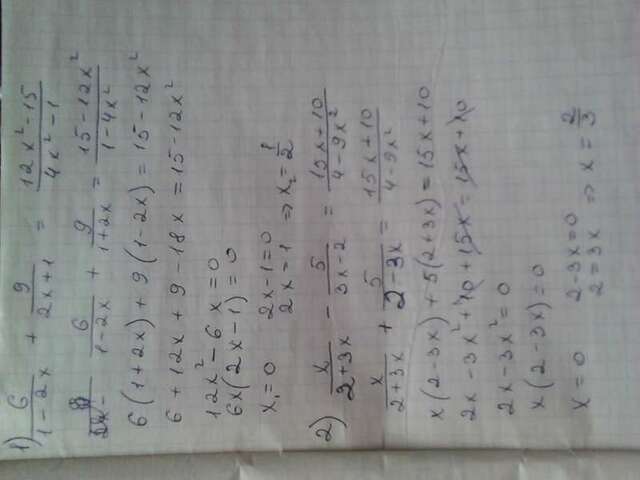 1) 6/(1-2x) + 9/(2x+1) = (12x²-15)/(4x²-1)
6/(1-2x) + 9/(1+2x) = (15-12x²)/(1-4x²)
6(1+2x) + 9(1-2x) = 15-12x²
6+12x+9-18x = 15-12x²
12x²-6x=0
6x(2x-1)=0
x₁=0 2x-1=0
2x=1 ⇒ x₂=1/2
2) x/(2+3x) - 5/(3x-2) = (15x+10)/(4-9x²)
x/(2+3x) + 5/(2-3x) = (15x+10)/(4-9x²)
x(2-3x)+5(2+3x)=15x+10
2x-3x²+10+15x=15x+10
2x-3x²=0
x(2-3x)=0
x=0 2-3x=0
2=3x ⇒ x=2/3